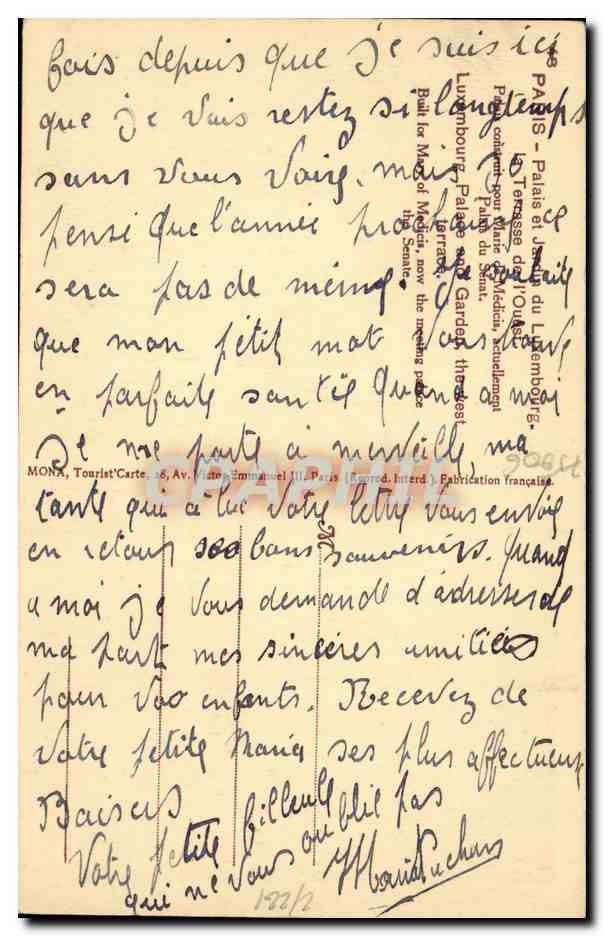 fois depuis que je suis ici
que je vais restez si longtemps
sans vous voire, mais je
pensé que l'année prochaine ce
sera pas de même Je souhaite
que mon petit mot vous trouve
en parfaite santé Quand a moi
Je me porte à merveille, ma
tante qui a lu votre lettre vous envoie
en retour bons souvenirs. Quand
a moi je vous demande d'adresser de
ma part mes sincères amitiés
pour vos enfants. Recevez de
votre petite Maria ses plus affectueux
Baisers
Votre petite filleule
qui ne vous oublie pas
Maria
PARIS - Palais et Jardin du Luxembourg.
la Terrasse de l'Ouest
Palais construit pour Marie de Médicis, actuellement
Palais du Sénat.
Luxembourg Palace and Garden, the west
terrace.
Built for Mary of Medicis, now the meeting palace
the Senate.
MONA, Tourist'Carte, 28, Av. Victor-Emmanuel III, Paris (Reprod. Interd.). Fabrication française.
CPAPHIL
122/2